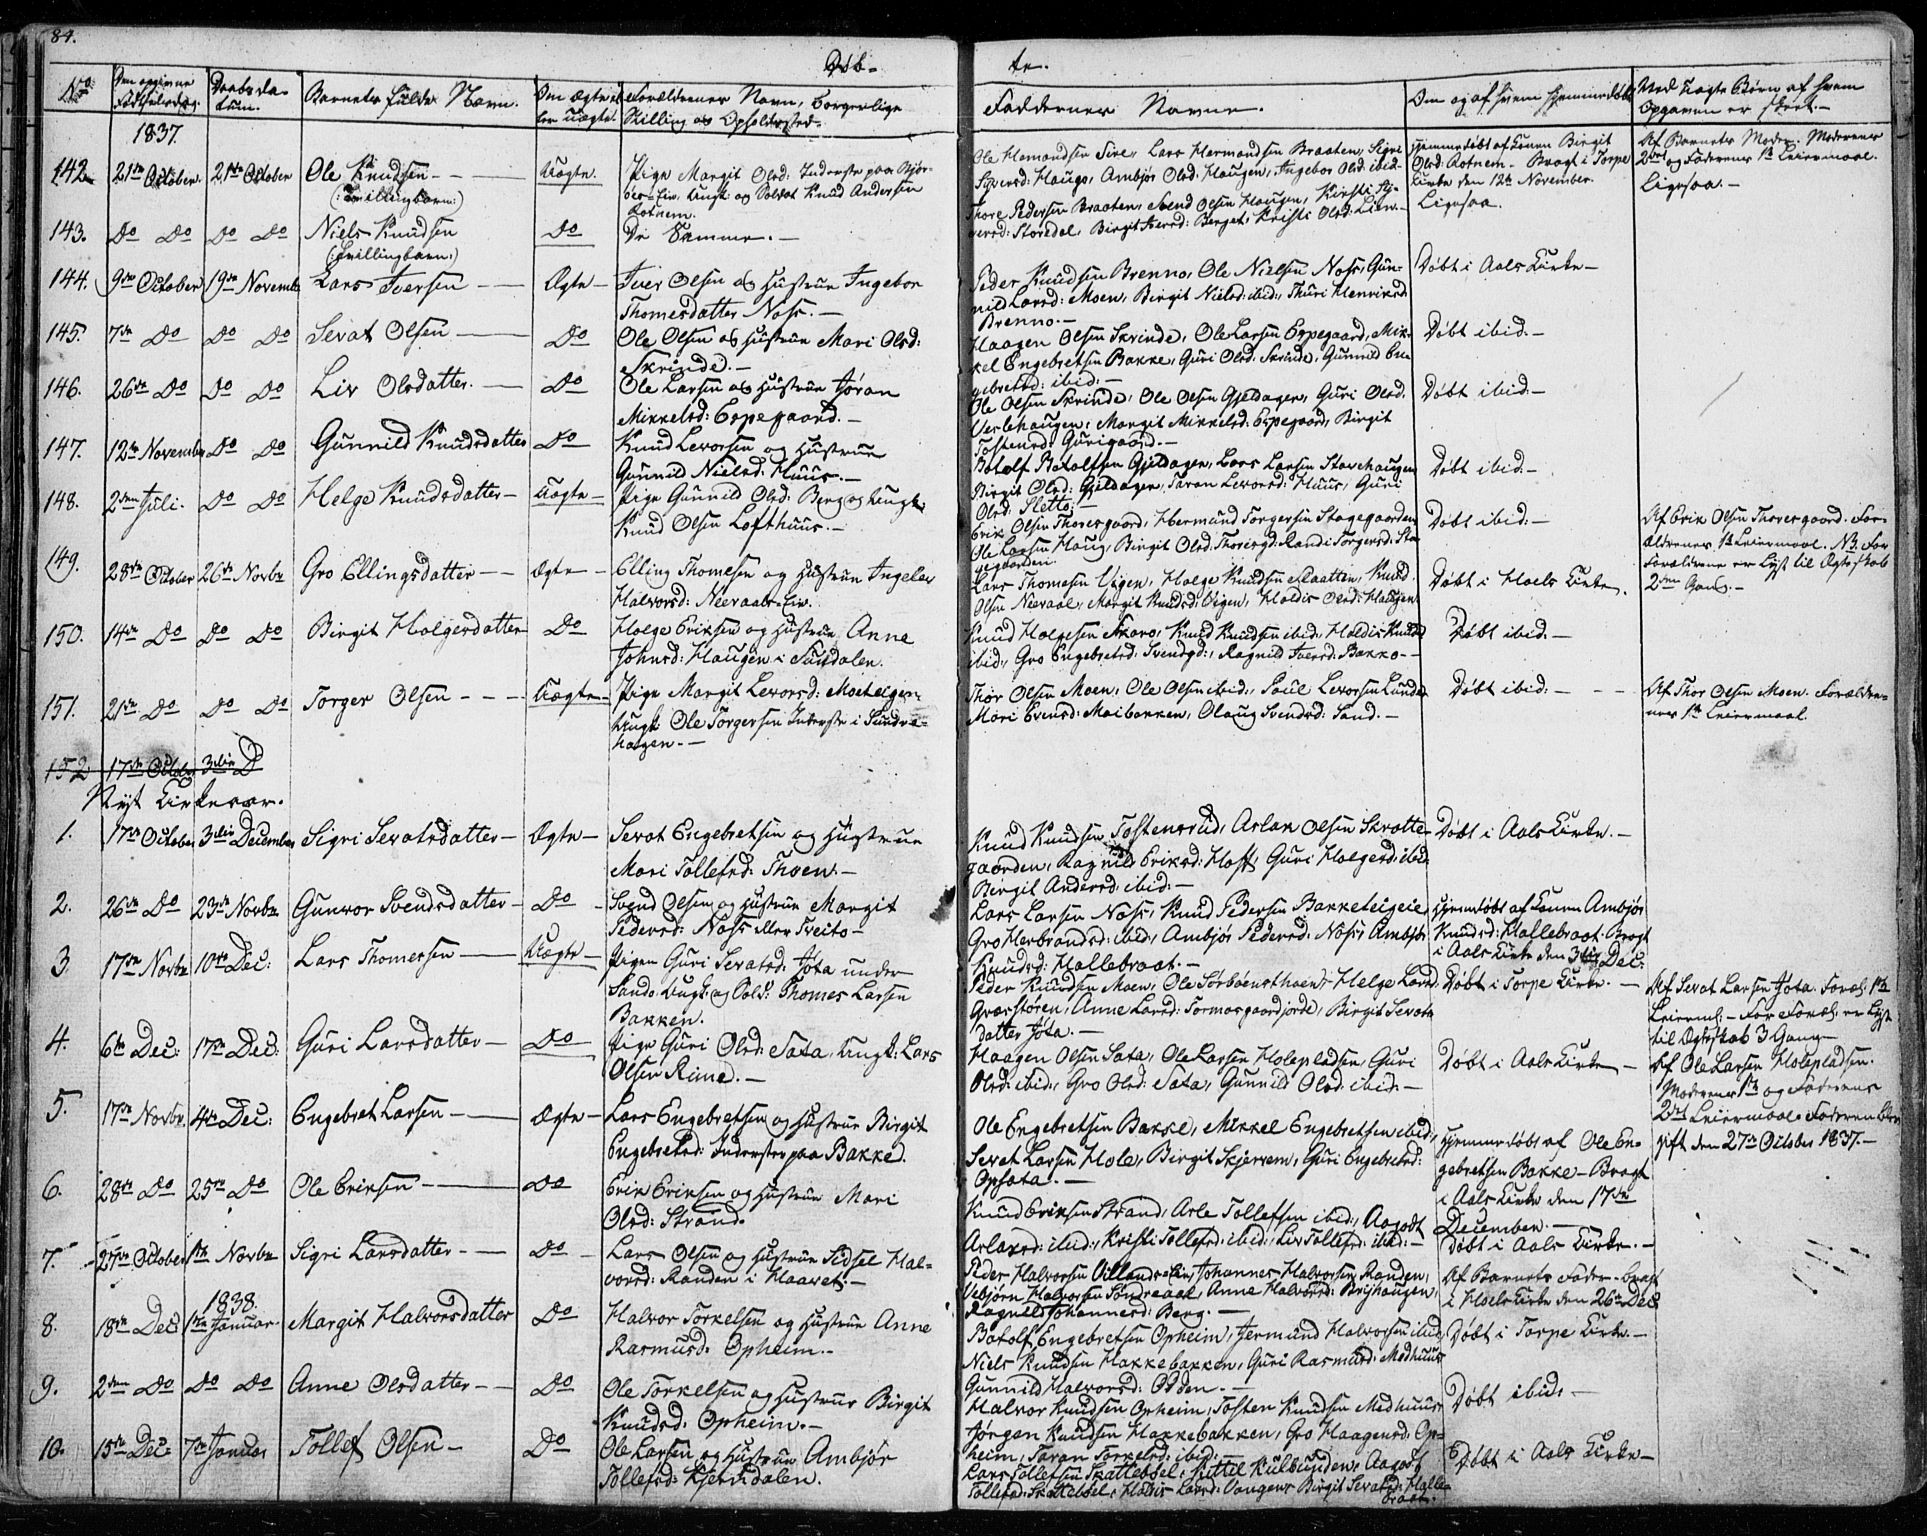 84.
Døb-
te.
No
Den opgivne
Fødselsdag.
Daabsda-
tum.
Barnets fulde Navn.
Om Ægte el-
ler uægte.
Forældrenes Navn, borgerlige
Stilling og Opholdssted.
Faddernes Navne.
Om og af hvem hjemmedøbt
Ved uægte Børn af hvem
Opgaven er skeet.
1837.
142.
21de October
21de October
Ole Knudsen
(:Tvillingbarn:)
Uægte.
Pige Margit Olsd: Inderste paa
Eie, Ungk: og Soldat Knud Andersen
Rotnem.
Ole Hermandsen Sire, Lars Hermandsen Braaten, Sigri
Siversd: Haugo, Ambjør Olsd: Haugen, Ingebor Olsd: ibid.
Hjemmedøbt af Konen Birgit
Olsd: Rotnem. Bragt i Torpe
Kirke den 12te November.
Af Barnets Moder. Moderens
2det og Faderens 1te Leiermaal.
143.
Do Do
Do Do
Niels Knudsen
(:Tvillingbarn:)
Do
De Samme.
Thore Pedersen Braaten, Svend Olsen Haugen, Kirsti
Storedal, Birgit Iversd: Berget, Kristi Olsd: Lien.
Ligesaa.
Ligesaa.
144.
9de October
19de November
Lars Iversen
Ægte
Iver Olsen og Hustrue Ingebor
Thomesdatter Noss.
Peder Knudsen Brenno, Ole Nielsen Noss, Gun-
nild Larsd: Moen, Birgit Nielsd: ibid, Thuri Henriksd:
Brenno.
Døbt i Aals Kirke
145.
7de Do
Do Do
Sevat Olsen
Do
Ole Olsen og Hustrue Mari Olsd:
Skrinde.
Haagen Olsen Skrinde, Ole Larsen Espegaard, Mik-
kel Engebretsen Bakke, Guri Olsd: Skrinde, Gunnild En-
gebretsd: ibid:
Døbt ibid:
146.
26de Do
Do Do
Liv Olsdatter
Do
Ole Larsen og Hustrue Jøran
Mikkelsd: Espegaard.
Ole Olsen Skrinde, Ole Olsen Gjeldager, Guri Olsd.
Veslehaugen, Margit Mikkelsd: Espegaard, Birgit
Tostensd: Gurigaard.
Døbt ibid:
147.
12te November
Do Do
Gunnild Knudsdatter
Do
Knud Levorsen og Hustrue
Gunnild Nielsd: Huus.
Botolf Botolfsen Gjeldager, Lars Larsen Stavehaugen
Birgit Olsd: Gjeldager, Taran Levorsd: Huus, Guri
Olsd: Sletto.
Døbt ibid:
148.
2den Juli.
Do Do
Helge Knudsdatter
Uægte
Pige Gunnild Olsd: Berg og Ungk:
Knud Olsen Lofthuus.
Erik Olsen Thoresgaard, Hermund Torgersen Stagegaarden
Ole Larsen Haug, Birgit Olsd: Thoresgd: Randi Torgersd: Sta-
gegaarden.
Døbt ibid:
Af Erik Olsen Thoresgaard. For-
ældrenes 1te Leiermaal. NB. For
Forældrene er lyst til Ægteskab
2den Gang.
149.
28de October
26de Novbr
Gro Ellingsdatter
Ægte
Elling Thomesen og Hustrue Ingeler
Halvorsd: Neeraals-Eie.
Lars Thomesen Vigen, Helge Knudsen Slaatten, Knud
Olsen Neeraal, Margit Knudsd: Vigen, Haldis Olsd: Haugen.
Døbt i Hoels Kirke.
150.
14de Do
Do Do
Birgit Holgersdatter
Do
Holge Eriksen og Hustrue Anne
Johnsd: Haugen i Sundalen.
Knud Holgesen Skaro, Knud Knudsen ibid:, Haldis Knudsd
ibid:, Gro Engebretsd: Svendsgd:, Ragnild Iversd: Bakko.
Døbt ibid.
151.
21de Do
Do Do
Torger Olsen
Uægte
Pige Margit Levorsd: Moeteigen
Ungk: Ole Torgersen Inderste i Sundre-
hagen.
Thor Olsen Moen, Ole Olsen ibid:, Poul Levorsen Lunde
Mari Evensd: Moibakken, Olaug Svendsd: Sand.
Døbt ibid:
Af Thor Olsen Moen. Forældre-
nes 1te Leiermaal.
152 17de October 3die D
Nyt Kirkeaar.
1.
17de October
3die December
Sigri Sevatsdatter
Ægte
Sevat Engebretsen og Hustrue
Mari Tollefsd: Thoen.
Knud Knudsen Tostensrud, Aslak Olsen Skratte-
gaarden, Ragnild Eriksd: Hoft, Guri Holgersd: ibid.
Birgit Andersd: ibid:
Døbt i Aals Kirke.
2.
26de Do
23de Novbr
Gunvor Svendsdatter
Do
Svend Olsen og Hustrue Margit
Pedersd: Noss eller Tveito
Lars Larsen Noss, Knud Pedersen Bakketeigeie,
Gro Herbrandsd: ibid:, Ambjør Pedersd: Noss, Ambjør
Knudsd: Hallebraat.
Hjemdøbt af Konen Ambjør
Knudsd: Hallebraat. Bragt
i Aals Kirke den 3die Dec:
3
17de Novbr
10de Dec:
Lars Thomesen
Uægte
Pigen Guri Sevatsd: Jota under
Sando. Ungk: og Sold: Thomes Larsen
Bakken.
Peder Knudsen Moen, Ole Sørbøensthoen, Helge Larsd
Græsstøren, Anne Larsd: Tormosgaardjorde, Birgit Sevats
datter Jota.
Døbt i Torpe Kirke.
Af Sevat Larsen Jota. Foræl: 1te
Leierm:. For Foræl: er lyst
til Ægteskab 3 Gang
4.
6te Dec:
17de Dec:
Guri Larsdatter
Do
Pige Guri Olsd: Sata, Ungk: Lars
Olsen Rime.
Haagen Olsen Sata, Ole Larsen Holepladsen, Guri
Olsd: ibid:, Gro Olsd: Sata, Gunnild Olsd: ibid:
Døbt i Aals Kirke
Af Ole Larsen Holepladsen.
Moderens 1te og Faderens
2det Leiermaal. Faderen blev
gift den 27de October 1837.
5.
17de Novbr.
4de Dec:
Engebret Larsen
Ægte
Lars Engebretsen og Hustrue Birgit
Engebretsd: Inderster paa Bakke.
Ole Engebretsen Bakke, Mikkel Engebretsen ibid:,
Sevet Larsen Hole, Birgit Skjervem, Guri Engebretsd:
Opsata.
Hjemmedøbt af Ole En-
gebretsen Bakke. Bragt
i Aals Kirke den 17de
December.
6.
28de Do
25de Do
Ole Eriksen
Do
Erik Eriksen og Hustrue Mari
Olsd: Strand.
Knud Eriksen Strand, Asle Tollefsen ibid:, Aagodt
Aslaksd: ibid:, Kristi Tollefsd: ibid:, Liv Tollefsd: ibid:
Døbt i Aals Kirke.
7.
27de October
1te Novbr
Sigri Larsdatter
Do
Lars Olsen og Hustrue Sidsel Hal-
vorsd: Randen i Haavet.
Peder Halvorsen Villands-Eie, Johannes Halvorsen Randen,
Vebjørn Halvorsen Sondreaal, Anne Halvorsd: Brejhaugen,
Ragnild Johannesd: Berg.
Af Barnets Fader. Bragt
i Hoels Kirke den 26de Dec
1838.
8.
18de Dec
1ste Januar
Margit Halvorsdatter
Do
Halvor Torkelsen og Hustrue Anne
Rasmusd: Opheim.
Botolf Engebretsen Opheim, Jermund Halvorsen ibid,
Niels Knudsen Hakkebakken, Guri Rasmusd: Medhuus
Gunnild Halvorsd: Odden.
Døbt i Torpe Kirke.
9.
2den Do
Do Do
Anne Olsdatter
Do
Ole Torkelsen og Hustrue Birgit
Knudsd: Opheim.
Halvor Knudsen Opheim, Tosten Knudsen Medhuus
Jørgen Knudsen Hakkebakken, Gro Haagensd: Op-
heim, Taran Torkelsd: ibid:
Døbt ibid:
10.
15de Dec:
7de Januar
Tollef Olsen
Do
Ole Larsen og Hustrue Ambjør
Tollefsd: Kjerrdalen.
Lars Tollefsen Skattebøl, Kittil Kulbunden, Aagodt
Tollefsd: Skattebøl, Haldis Larsd: Vangen, Birgit Sevatsd: Halle-
braat.
Døbt i Aals Kirke